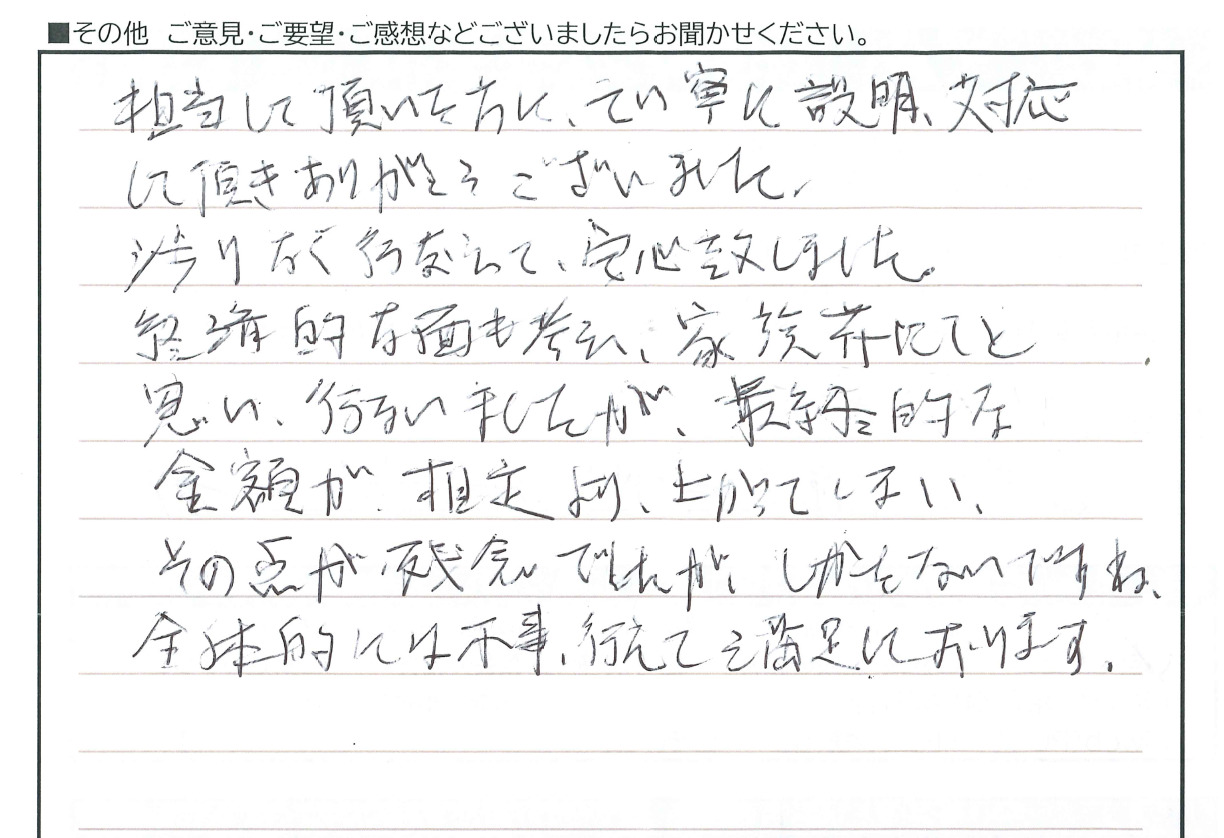 ■その他 ご意見・ご要望・ご感想などございましたらお聞かせください。
担当して頂いた方に、てい寧に説明、対応
して頂きありがとうございました。
滞りなく行なえて、安心致しました。
経済的な面も考え、家族葬にてと
思い、行ないましたが、最終的な
金額が、推定より、上がってしまい、
その点が残念でしたが、しかたないですね、
全体的には不事、行えて満足しております。